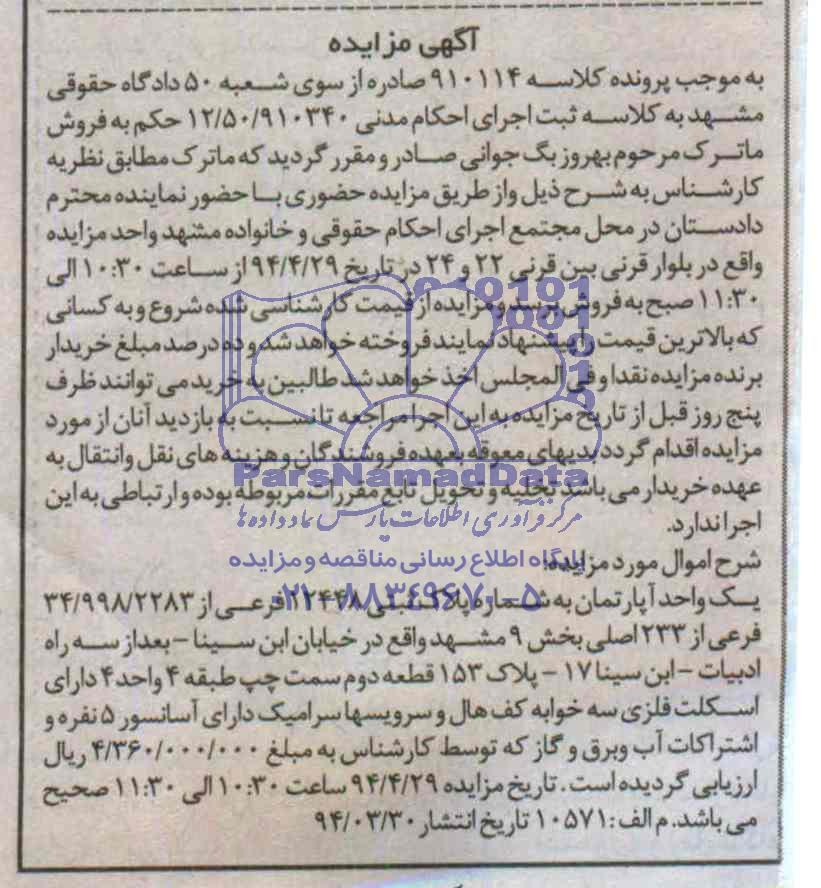 آگهی مزایده
به موجب پرونده کلاسه ۹۱۰۱۱۴ صادره از سوی شعبه ۵۰ دادگاه حقوقی
مشهد به کلاسه ثبت اجرای احکام مدنی ۱۲/۵۰/۹۱۰۳۴۰ حکم به فروش
ماترک مرحوم بهروز بگ جوانی صادر و مقرر گردید که ماترک مطابق نظریه
کارشناس به شرح ذیل واز طریق مزایده حضوری با حضور نماینده محترم
دادستان در محل مجتمع اجرای احکام حقوقی و خانواده مشهد واحد مزایده
واقع در بلوار قرنی بین قرنی ۲۲ و ۲۴ در تاریخ ۹۴/۴/۲۹ از ساعت ۱۰:۳۰ الی
۱۱:۳۰ صبح به فروش برسد و مزایده از قیمت کارشناسی شده شروع و به کسانی
که بالاترین قیمت را پیشنهاد نمایند فروخته خواهد شد و ده درصد مبلغ خریدار
برنده مزایده نقدا و فی المجلس اخذ خواهد شد طالبین به خرید می توانند ظرف
پنج روز قبل از تاریخ مزایده به این اجرا مراجعه تا نسبت به بازدید آنان از مورد
مزایده اقدام گردد بدیهای معوقه بعهده فروشندگان و هزینه های نقل وانتقال به
ParsNamadData
عهده خریدار می باشد تخلیه و تحویل تابع مقررات مربوطه بوده و ارتباطی به این
مرکز فرآوری اطلاعات پارس نماد داده ها
اجرا ندارد.
شرح اموال مورد مزایده:
پایگاه اطلاع رسانی مناقصه و مزایده
یک واحد آپارتمان به شماره پلاک ثبتی ۱۲۴۴۸ فرعی از ۳۴/۹۹۸/۲۲۸۳
۰۲۱-۸۸۳۴۹۶۷۰-۵
فرعی از ۲۳۳ اصلی بخش ۹ مشهد واقع در خیابان ابن سینا - بعداز سه راه
ادبیات - ابن سینا ۱۷ - پلاک ۱۵۳ قطعه دوم سمت چپ طبقه ۴ واحد ۴ دارای
اسکلت فلزی سه خوابه کف هال و سرویسها سرامیک دارای آسانسور ۵ نفره و
اشتراکات آب وبرق و گاز که توسط کارشناس به مبلغ ۴/۳۶۰/۰۰۰/۰۰۰ ریال
ارزیابی گردیده است. تاریخ مزایده ۹۴/۴/۲۹ ساعت ۱۰:۳۰ الی ۱۱:۳۰ صحیح
می باشد. م الف: ۱۰۵۷۱ تاریخ انتشار ۹۴/۰۳/۳۰